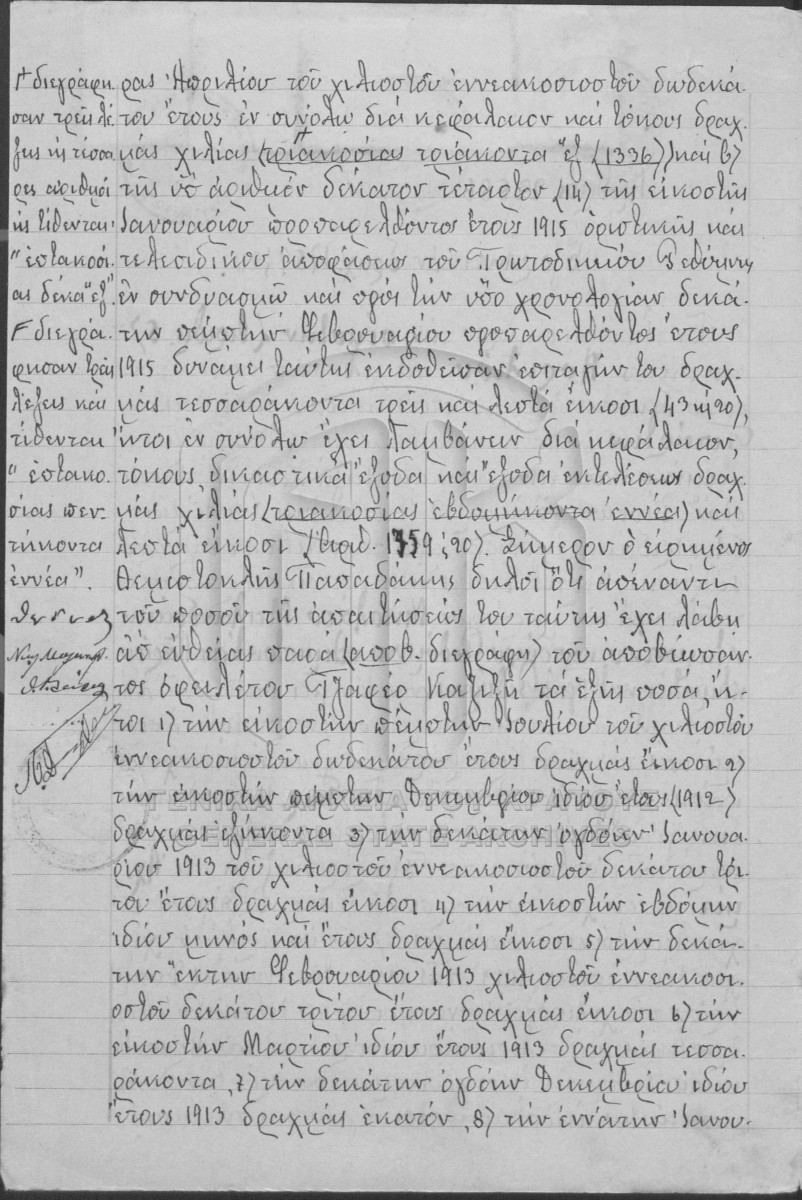 ρας Ἀπριλίου τοῦ χιλιοστοῦ ἐννεακοσιοστοῦ δωδεκά-
του ἔτους ἐν συνόλῳ διὰ κεφάλαιον καὶ τόκους δραχ-
μὰς χιλίας (τριακοσίας τριάκοντα ἓξ (1336)) καὶ β)
τῆς ὑπ' ἀριθμὸν δέκατον τέταρτον (14) τῆς εἰκοστῆς
Ἰανουαρίου προπαρελθόντος ἔτους 1915 ὁριστικῆς καὶ
τελεσιδίκου ἀποφάσεως τοῦ Πρωτοδικείου Ρεθύμνης
ἐν συνδυασμῷ καὶ πρὸς τὴν ὑπὸ χρονολογίαν δεκά-
την πέμπτην Φεβρουαρίου προπαρελθόντος ἔτους
1915 δυνάμει ταύτης ἐκδοθεῖσαν ἐπιταγήν του δραχ-
μὰς τεσσαράκοντα τρεῖς καὶ λεπτὰ εἴκοσι (43 καὶ 20),
ἤτοι ἐν συνόλῳ ἔχει λαμβάνειν διὰ κεφάλαιον,
τόκους, δικαστικὰ ἔξοδα καὶ ἔξοδα ἐκτελέσεως δραχ-
μὰς χιλίας (τριακοσίας ἑβδομήκοντα ἐννέα) καὶ
λεπτὰ εἴκοσι (ἀριθ. 1759,20). Σήμερον ὁ εἰρημένος
Θεμιστοκλῆς Παπαδάκης δηλοῖ ὅτι ἀπέναντι
τοῦ ποσοῦ τῆς ἀπαιτήσεώς του ταύτης ἔχει λάβῃ
ἀπ' εὐθείας παρὰ (αποβ. διεγράφη) τοῦ ἀποβιώσαν-
τος ὀφειλέτου Τζαφὲρ Καζιζῆ τὰ ἑξῆς ποσά, ἤ-
τοι 1) τὴν εἰκοστὴν πέμπτην Ἰουλίου τοῦ χιλιοστοῦ
ἐννεακοσιοστοῦ δωδεκάτου ἔτους δραχμὰς εἴκοσι 2)
τὴν εἰκοστὴν πέμπτην Δεκεμβρίου ἰδίου ἔτους (1912)
δραχμὰς ἑξήκοντα 3) τὴν δεκάτην ὀγδόην Ἰανουα-
ρίου 1913 τοῦ χιλιοστοῦ ἐννεακοσιοστοῦ δεκάτου τρί-
του ἔτους δραχμὰς εἴκοσι 4) τὴν εἰκοστὴν ἑβδόμην
ἰδίου μηνὸς καὶ ἔτους δραχμὰς εἴκοσι 5) τὴν δεκά-
την ἕκτην Φεβρουαρίου 1913 χιλιοστοῦ ἐννεακοσι-
οστοῦ δεκάτου τρίτου ἔτους δραχμὰς εἴκοσι 6) τὴν
εἰκοστὴν Μαρτίου ἰδίου ἔτους 1913 δραχμὰς τεσσα-
ράκοντα, 7) τὴν δεκάτην ὀγδόην Δεκεμβρίου ἰδίου
ἔτους 1913 δραχμὰς ἑκατόν, 8) τὴν ἐννάτην Ἰανου-
διεγράφη-
σαν τρεῖς λέ-
ξεις καὶ τέσσα-
ρες ἀριθμοὶ
καὶ τίθενται
"ἑπτακοσί-
ας δέκα ἓξ".
διεγρά-
φησαν τρεῖς
λέξεις καὶ
τίθενται
"ἑπτακο-
σίας πεν-
τήκοντα
ἐννέα".
ΓΕΝΙΚΑ ΑΡΧΕΙΑ ΤΟΥ ΚΡΑΤΟΥΣ
GENERAL STATE ARCHIVES